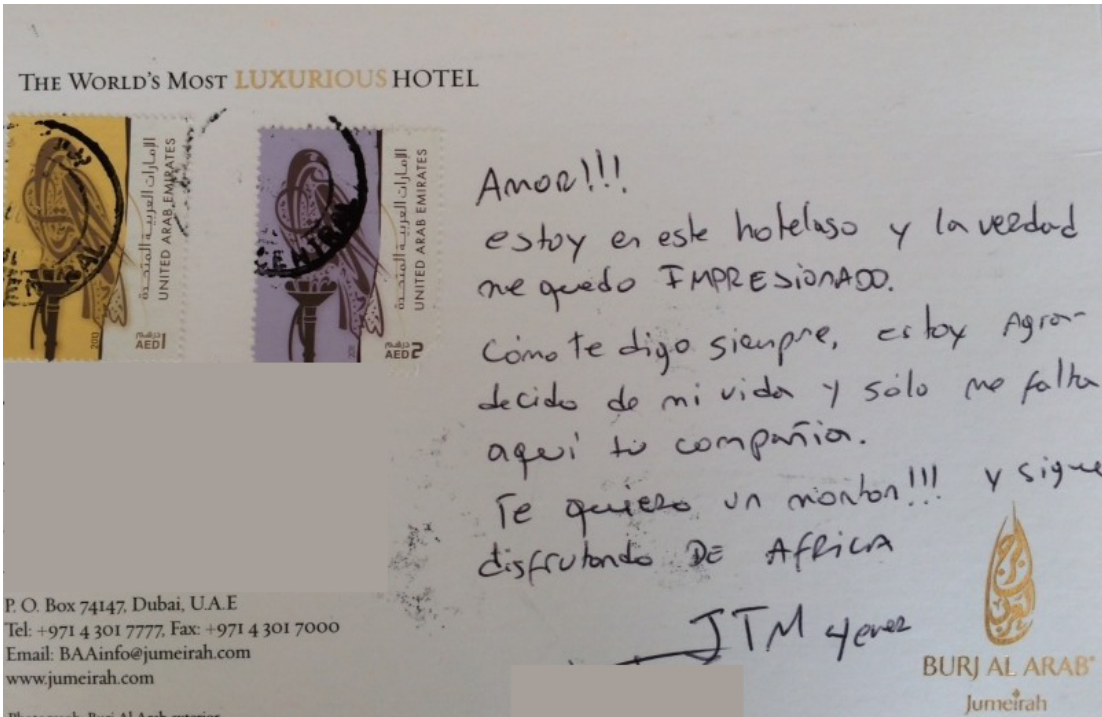 THE WORLD'S MOST LUXURIOUS HOTEL
الإمارات العربية المتحدة
UNITED ARAB EMIRATES
2013
درهم
AED1
الإمارات العربية المتحدة
UNITED ARAB EMIRATES
درهم
AED2
Amor!!!
estoy en este hotelaso y la verdad
me quedo IMPRESIONADO.
Cómo te digo siempre, estoy Agra-
decido de mi vida y sólo me falta
aquí tu compañia.
Te quiero un monton!!! y sigue
disfrutando DE AFRICA
JTM 4ever
P. O. Box 74147, Dubai, U.A.E
Tel: +971 4 301 7777, Fax: +971 4 301 7000
Email: BAAinfo@jumeirah.com
www.jumeirah.com
Photograph: Burj Al Arab exterior
برج العرب
BURJ AL ARAB®
Jumeirah